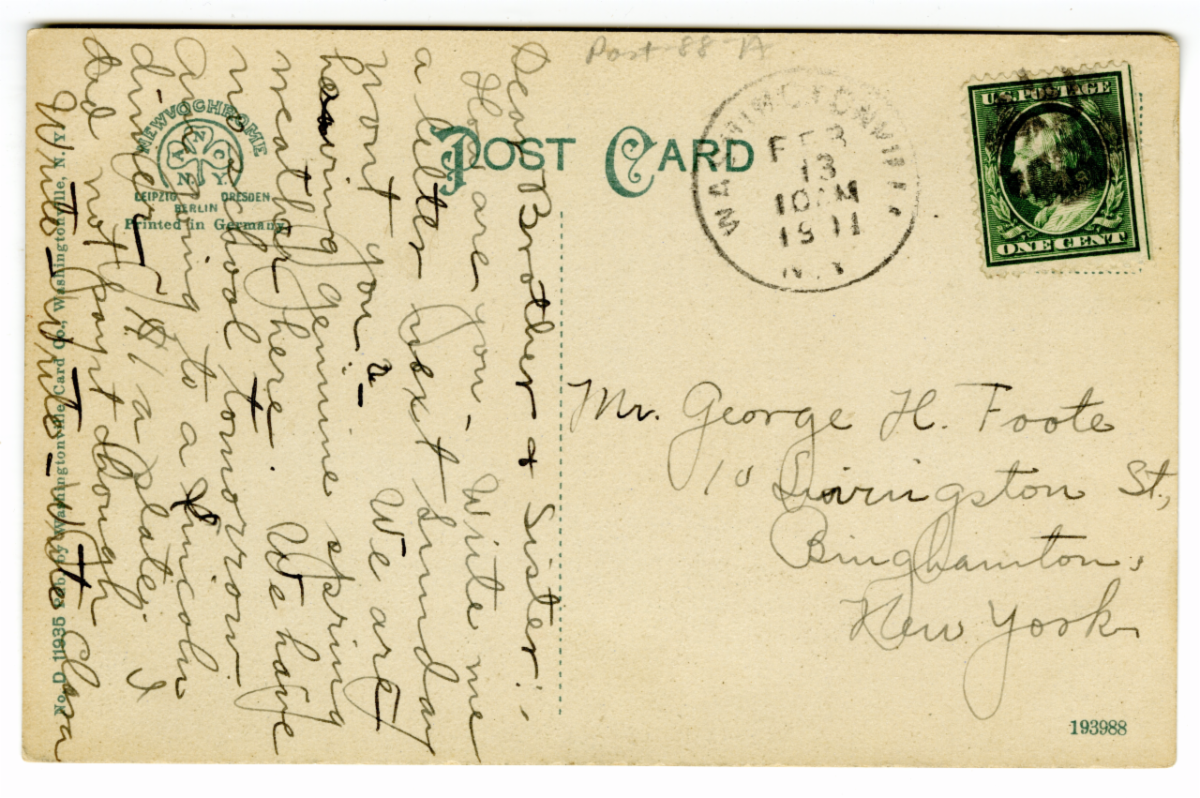 Post 88-A
POST CARD
WASHINGTONVILLE,
FEB
13
10 AM
1911
N.Y.
U.S. POSTAGE
ONE CENT
NEWVOCHROME
A N Z O C
N. Y.
LEIPZIG DRESDEN
BERLIN
Printed in Germany
Dear Brother & Sister:,
How are you, Write me
a letter next Sunday
wont you? - We are
having genuine spring
weather here. We have
no school tomorrow.
Am going to a Lincoln
dinner - $1 a plate. I
did not pay though
Write - Write - write Clara
No. D 11935 Pub. by Washingtonville Card Co., Washingtonville, N. Y.
Mr. George H. Foote
10 Livingston St,
Binghamton,
New York
193988